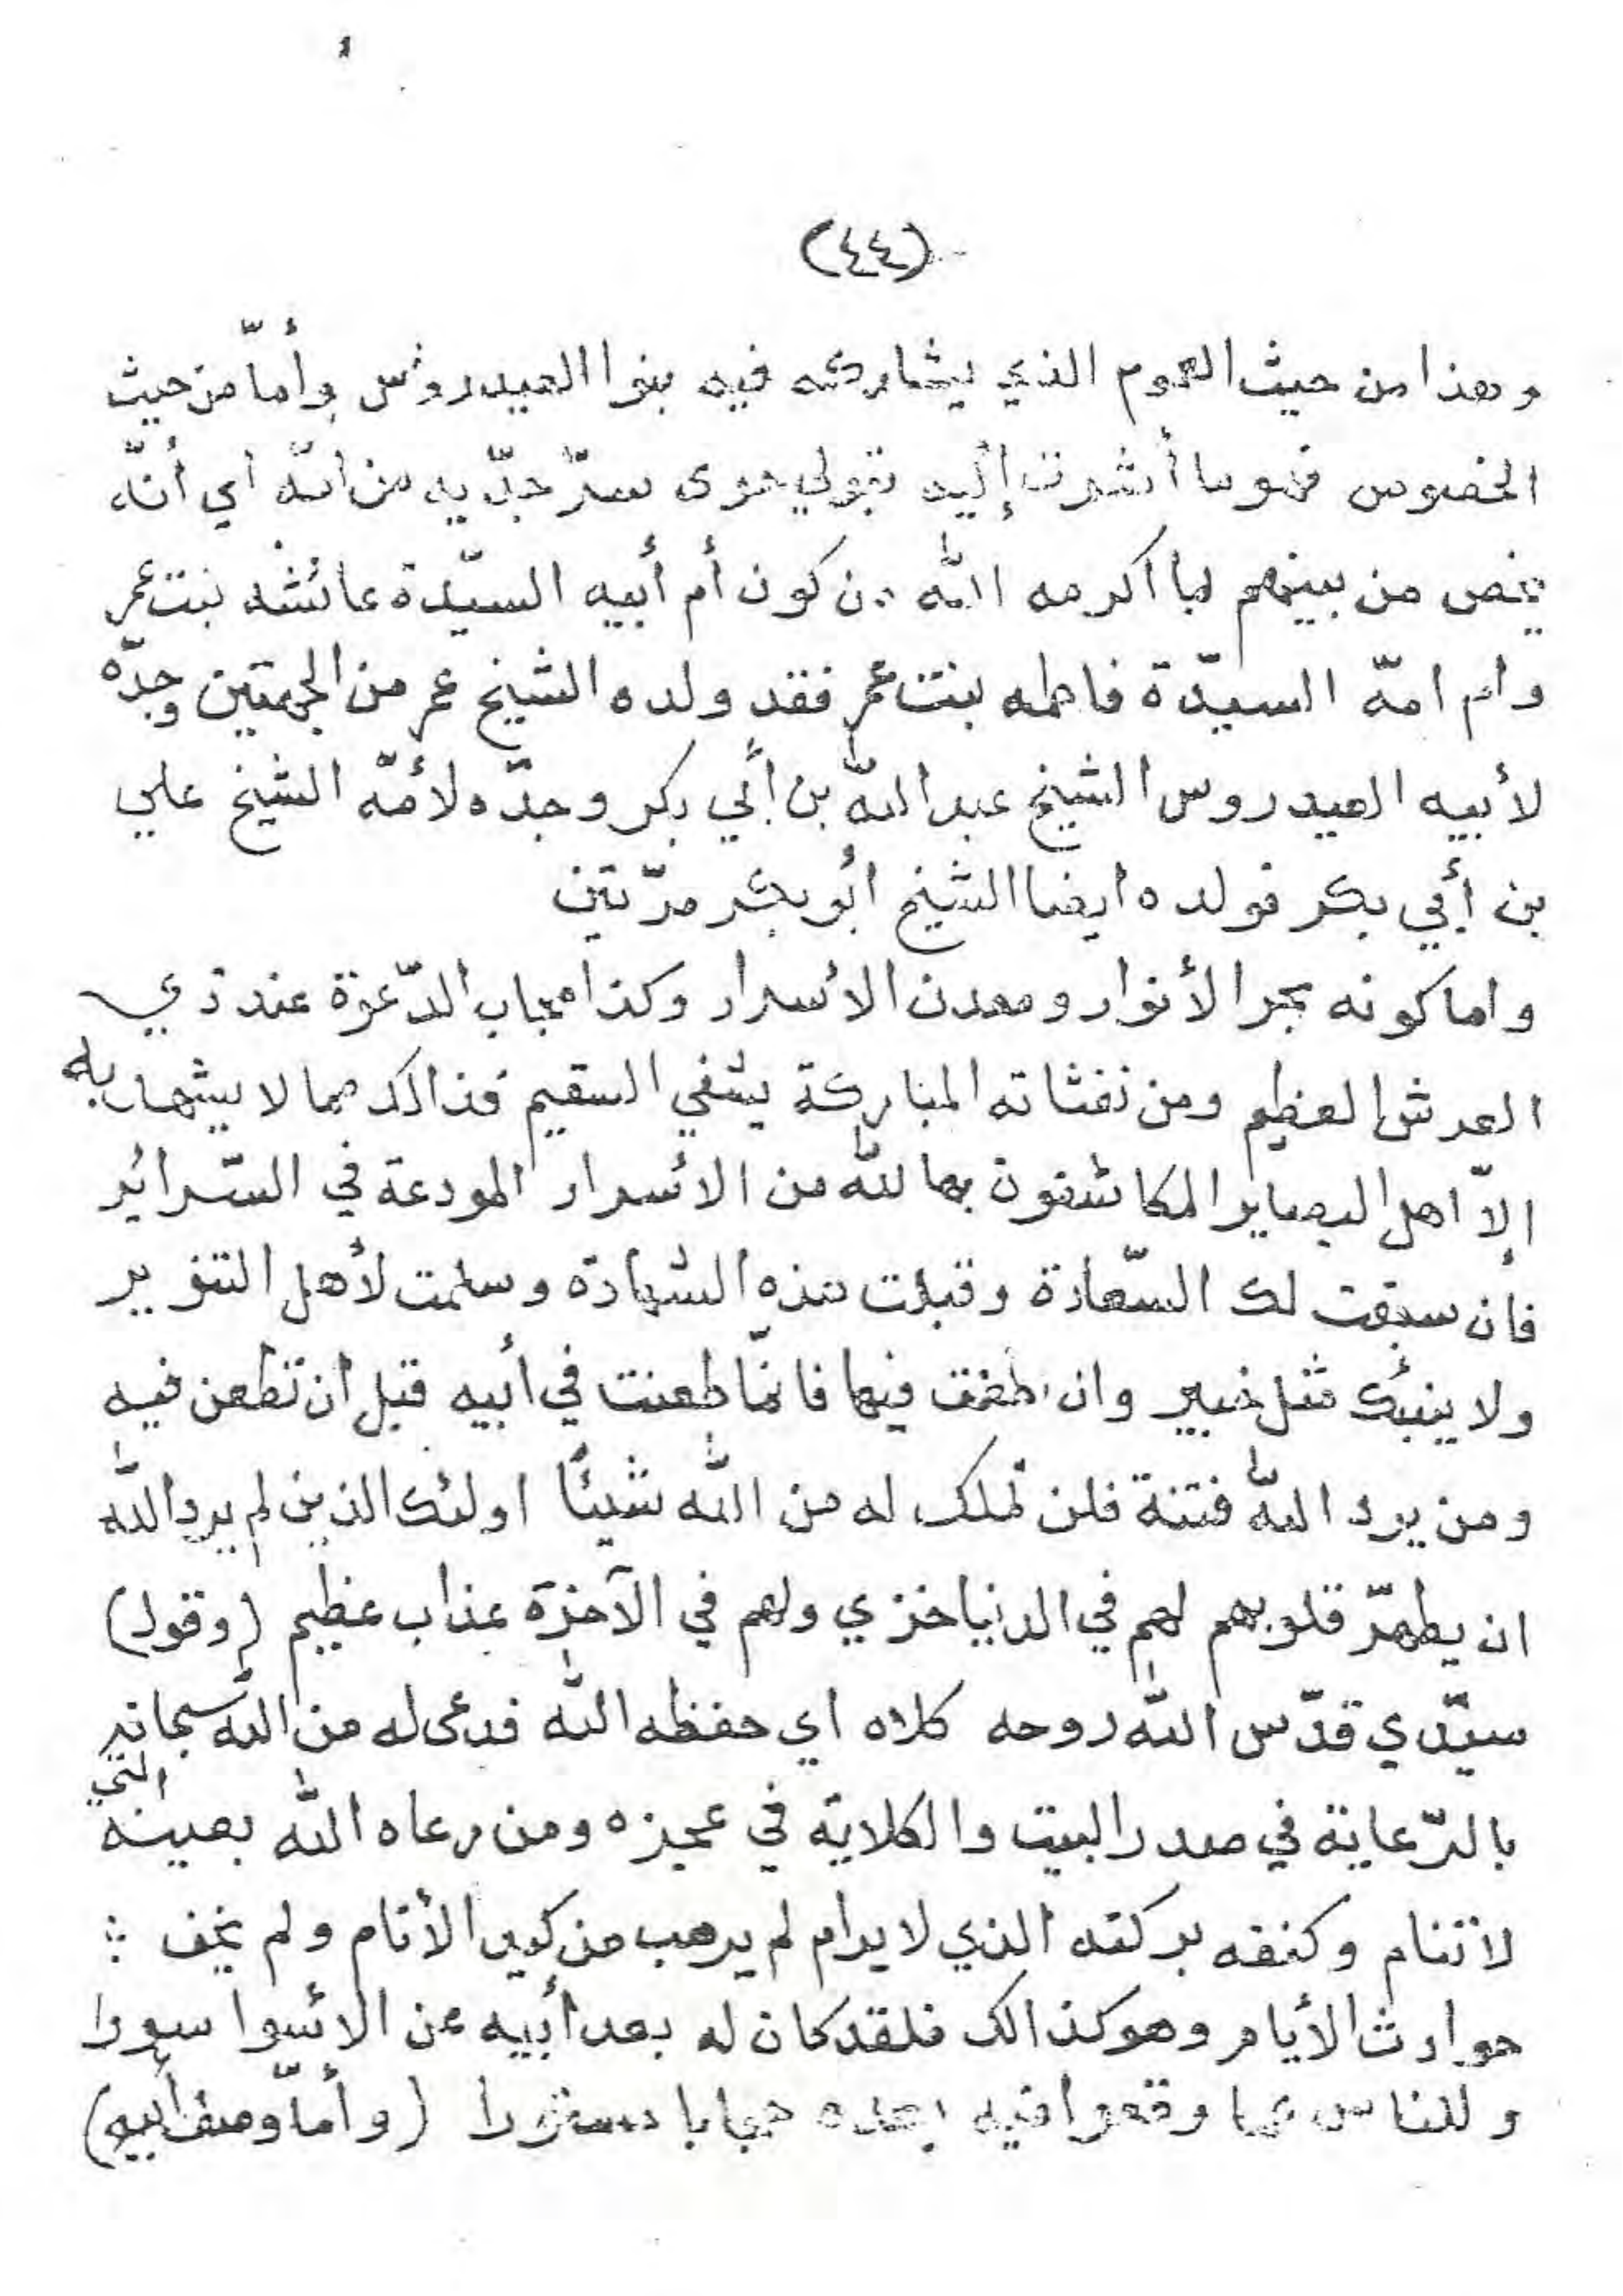 (٤٤)
وهذا من حيث العموم الذي يشاركه فيه بنوا العيدروس وأمّا من حيث
الخصوص فهو ما أشرت إليه بقولي حوى سرّ جدّيه من الله اي أنّه
يخص من بينهم بما اكرمه الله من كون أم أبيه السيّدة عائشه بنت عمر
وام امه السيّدة فاطمه بنت عمر فقد ولده الشيخ عمر من الجهتين وجدّه
لأبيه العيدروس الشيخ عبد الله بن أبي بكر وجدّه لأمّه الشيخ علي
بن أبي بكر فولده ايضا الشيخ أبو بكر مرّتين
واما كونه بحر الأنوار ومعدن الأسرار وكذا مجاب الدّعوة عند ذي
العرش العظيم ومن نفثاته المباركة يشفي السقيم فذالك مما لا يشهد به
إلاّ اهل البصاير المكاشفون بما لله من الأسرار المودعة في السّرائر
فإن سبقت لك السّعادة وقبلت هذه الشهادة وسلمت لأهل التنوير
ولا ينبئك مثل خبير وان طعنت فيها فانمّا طعنت في أبيه قبل ان تطعن فيه
ومن يرد الله فتنة فلن تملك له من الله شيئًا اولئك الذين لم يرد الله
ان يطهرّ قلوبهم لهم في الدنيا خزي ولهم في الآخرة عذاب عظيم (وقول)
سيّدي قدّس الله روحه كلاه اي حفظه الله فدعى له من الله سبحانه
بالرّعاية في صدر البيت والكلاية في عجزه ومن رعاه الله بعينه التي
لا تنام وكنفه بركنه الذي لا يرام لم يرهب من كيد الأنام ولم يخف
حوادث الأيام وهو كذالك فلقد كان له بعد أبيه عن الأسوا سورا
وللناس عما وقعوا فيه بعده حجابا مستورا (وأمّا وصف أبيه)